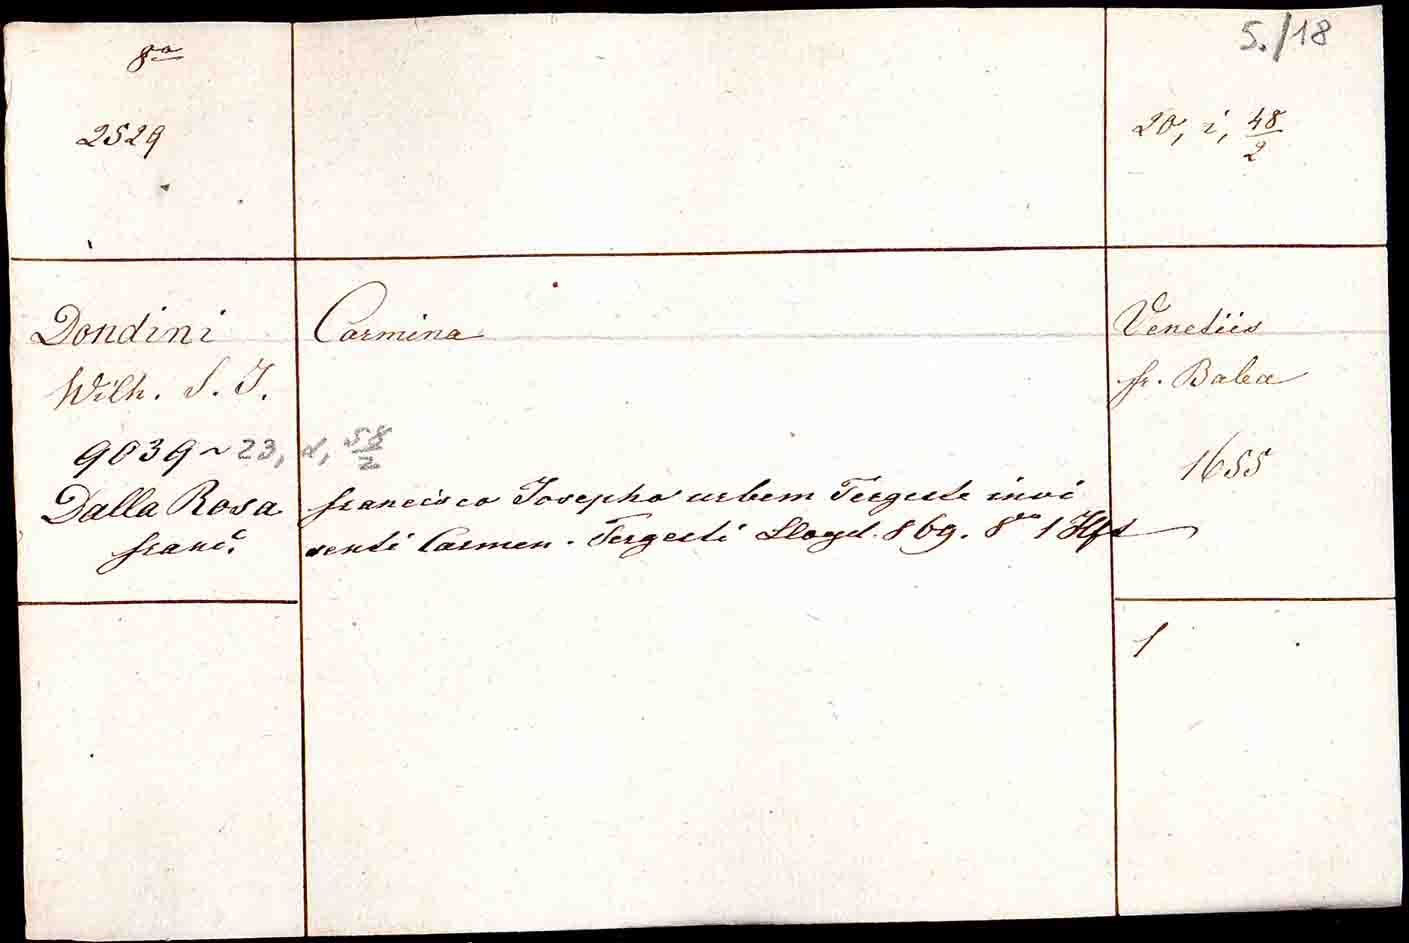 8vo
5./18
2529
20, i, 48/2
Dondini
Carmina
Venetiis
Wilh. S. J.
fr. Baba
1655
9039 ~ 23, α, 58/2
Dalla Rosa
Franc.
Francisco Josepho urbem Tergeste invi
senti Carmen. Tergesti Lloyd. 869. 8vo 1 Hft
1